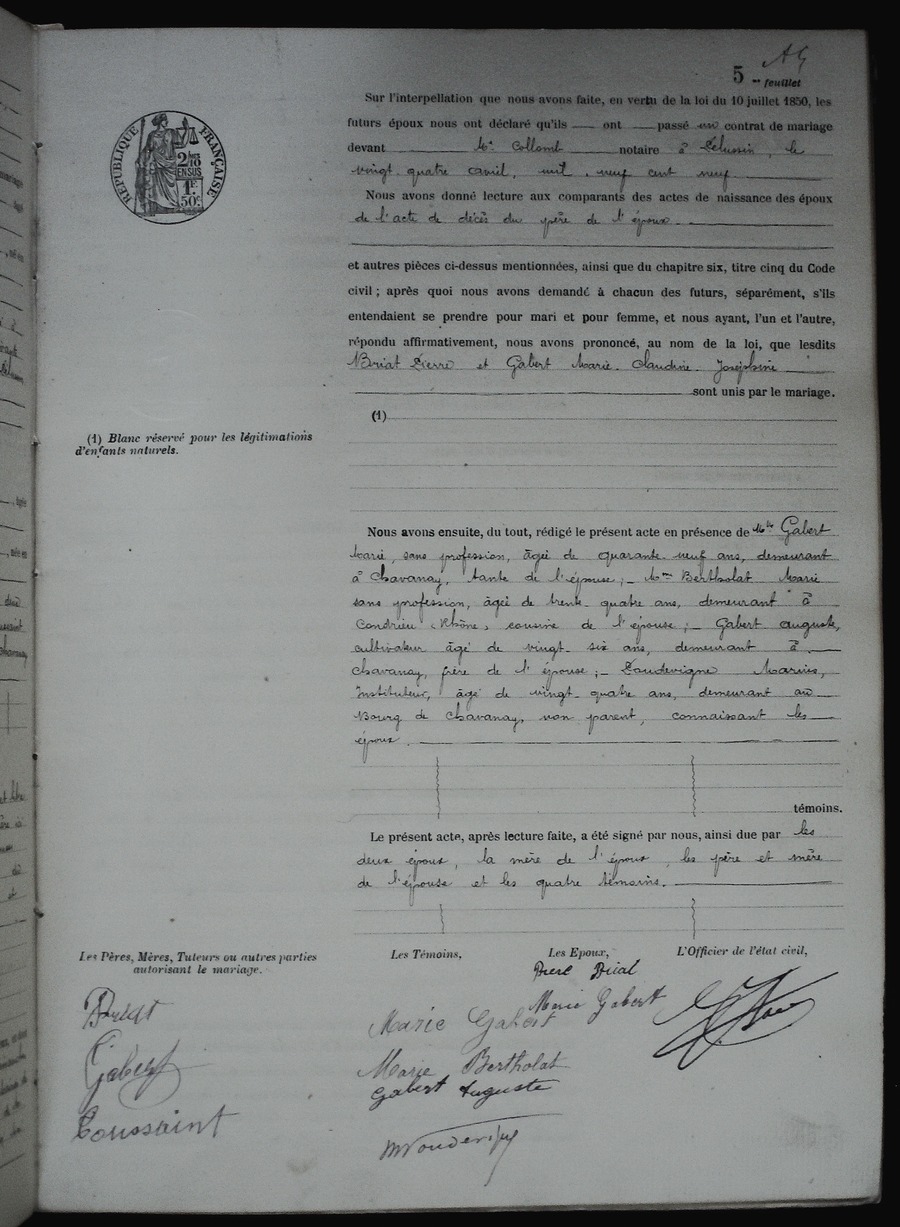 5
me feuillet
RÉPUBLIQUE FRANÇAISE
2/10es
EN SUS
1F.
50c
Sur l'interpellation que nous avons faite, en vertu de la loi du 10 juillet 1850, les
futurs époux nous ont déclaré qu'ils ont passé un contrat de mariage
devant Me Collomb notaire à Pélussin, le
vingt quatre avril, mil neuf cent neuf
Nous avons donné lecture aux comparants des actes de naissance des époux
de l'acte de décès du père de l'époux.
et autres pièces ci-dessus mentionnées, ainsi que du chapitre six, titre cinq du Code
civil ; après quoi nous avons demandé à chacun des futurs, séparément, s'ils
entendaient se prendre pour mari et pour femme, et nous ayant, l'un et l'autre,
répondu affirmativement, nous avons prononcé, au nom de la loi, que lesdits
Briat Pierre et Gabert Marie Claudine Joséphine
sont unis par le mariage.
(1)
(1) Blanc réservé pour les légitimations
d'enfants naturels.
Nous avons ensuite, du tout, rédigé le présent acte en présence de Mlle Gabert
Marie, sans profession, âgée de quarante neuf ans, demeurant
à Chavanay, tante de l'épouse ;- Mme Bertholat Marie
sans profession, âgée de trente quatre ans, demeurant à
Condrieu (Rhône) cousine de l'épouse ;- Gabert Auguste,
cultivateur âgé de vingt six ans, demeurant à
Chavanay, frère de l'épouse ;- Marius,
Instituteur, âgé de vingt quatre ans, demeurant au
Bourg de Chavanay, non parent, connaissant les
époux.
témoins.
Le présent acte, après lecture faite, a été signé par nous, ainsi due par les
deux époux, la mère de l'époux, les père et mère
de l'épouse et les quatre témoins.
Les Pères, Mères, Tuteurs ou autres parties
autorisant le mariage.
Les Témoins,
Les Epoux,
L'Officier de l'état civil,
Marie Gabert
Marie Gabert
Gabert
Marie Bertholat
Gabert Auguste
Toussaint